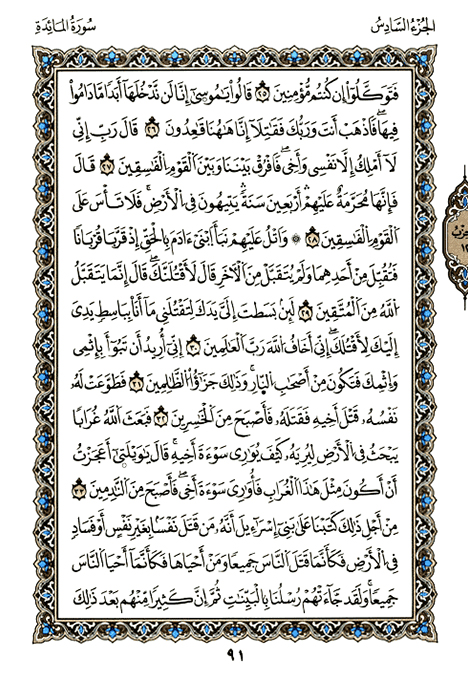 الجُزءُ السَّادِسُ
سُورَةُ المَائِدَةِ
فَتَوَكَّلُوٓاْ إِن كُنتُم مُّؤْمِنِينَ ٢٥ قَالُواْ يَٰمُوسَىٰٓ إِنَّا لَن نَّدْخُلَهَآ أَبَدًا مَّا دَامُواْ
فِيهَا فَٱذْهَبْ أَنتَ وَرَبُّكَ فَقَٰتِلَآ إِنَّا هَٰهُنَا قَٰعِدُونَ ٢٦ قَالَ رَبِّ إِنِّي
لَآ أَمْلِكُ إِلَّا نَفْسِي وَأَخِي فَٱفْرُقْ بَيْنَنَا وَبَيْنَ ٱلْقَوْمِ ٱلْفَٰسِقِينَ ٢٧ قَالَ
فَإِنَّهَا مُحَرَّمَةٌ عَلَيْهِمْ أَرْبَعِينَ سَنَةً يَتِيهُونَ فِي ٱلْأَرْضِ فَلَا تَأْسَ عَلَى
ٱلْقَوْمِ ٱلْفَٰسِقِينَ ٢٨ ۞ وَٱتْلُ عَلَيْهِمْ نَبَأَ ٱبْنَيْ ءَادَمَ بِٱلْحَقِّ إِذْ قَرَّبَا قُرْبَانًا
فَتُقُبِّلَ مِنْ أَحَدِهِمَا وَلَمْ يُتَقَبَّلْ مِنَ ٱلْأٓخَرِ قَالَ لَأَقْتُلَنَّكَ قَالَ إِنَّمَا يَتَقَبَّلُ
ٱللَّهُ مِنَ ٱلْمُتَّقِينَ ٢٩ لَئِنۢ بَسَطتَ إِلَيَّ يَدَكَ لِتَقْتُلَنِي مَآ أَنَا۠ بِبَاسِطٍ يَدِيَ
إِلَيْكَ لِأَقْتُلَكَ إِنِّيٓ أَخَافُ ٱللَّهَ رَبَّ ٱلْعَٰلَمِينَ ٣٠ إِنِّيٓ أُرِيدُ أَن تَبُوٓأَ بِإِثْمِي
وَإِثْمِكَ فَتَكُونَ مِنْ أَصْحَٰبِ ٱلنَّارِ وَذَٰلِكَ جَزَٰٓؤُاْ ٱلظَّٰلِمِينَ ٣١ فَطَوَّعَتْ لَهُۥ
نَفْسُهُۥ قَتْلَ أَخِيهِ فَقَتَلَهُۥ فَأَصْبَحَ مِنَ ٱلْخَٰسِرِينَ ٣٢ فَبَعَثَ ٱللَّهُ غُرَابًا
يَبْحَثُ فِي ٱلْأَرْضِ لِيُرِيَهُۥ كَيْفَ يُوَٰرِي سَوْءَةَ أَخِيهِ قَالَ يَٰوَيْلَتَىٰٓ أَعَجَزْتُ
أَنْ أَكُونَ مِثْلَ هَٰذَا ٱلْغُرَابِ فَأُوَٰرِيَ سَوْءَةَ أَخِي فَأَصْبَحَ مِنَ ٱلنَّٰدِمِينَ ٣٣
مِنْ أَجْلِ ذَٰلِكَ كَتَبْنَا عَلَىٰ بَنِيٓ إِسْرَٰٓءِيلَ أَنَّهُۥ مَن قَتَلَ نَفْسًۢا بِغَيْرِ نَفْسٍ أَوْ فَسَادٍ
فِي ٱلْأَرْضِ فَكَأَنَّمَا قَتَلَ ٱلنَّاسَ جَمِيعًا وَمَنْ أَحْيَاهَا فَكَأَنَّمَآ أَحْيَا ٱلنَّاسَ
جَمِيعًا وَلَقَدْ جَآءَتْهُمْ رُسُلُنَا بِٱلْبَيِّنَٰتِ ثُمَّ إِنَّ كَثِيرًا مِّنْهُم بَعْدَ ذَٰلِكَ
٩١